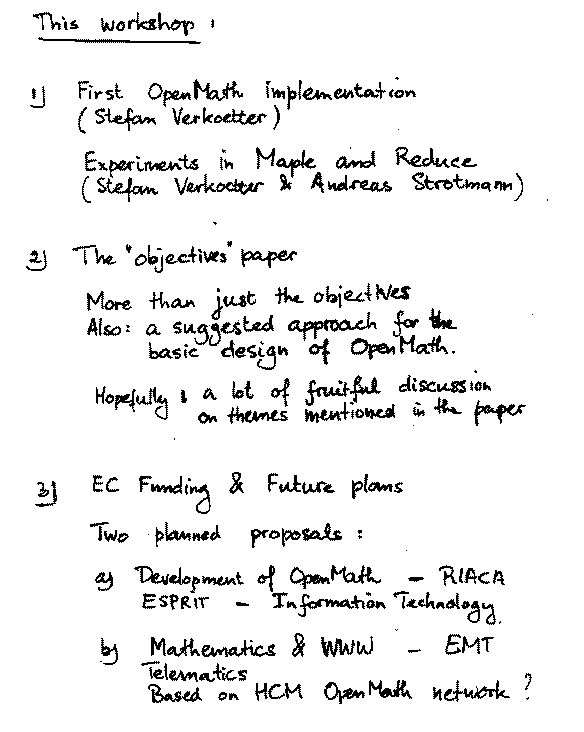 This workshop :
1) First OpenMath implementation
(Stefan Verkoetter)
Experiments in Maple and Reduce
(Stefan Verkoetter & Andreas Strotmann)
2) The "objectives" paper
More than just the objectives
Also: a suggested approach for the
basic design of OpenMath.
Hopefully : a lot of fruitful discussion
on themes mentioned in the paper
3) EC Funding & Future plans
Two planned proposals :
a) Development of OpenMath – RIACA
ESPRIT – Information Technology.
b) Mathematics & WWW – EMT
Telematics
Based on HCM OpenMath network ?